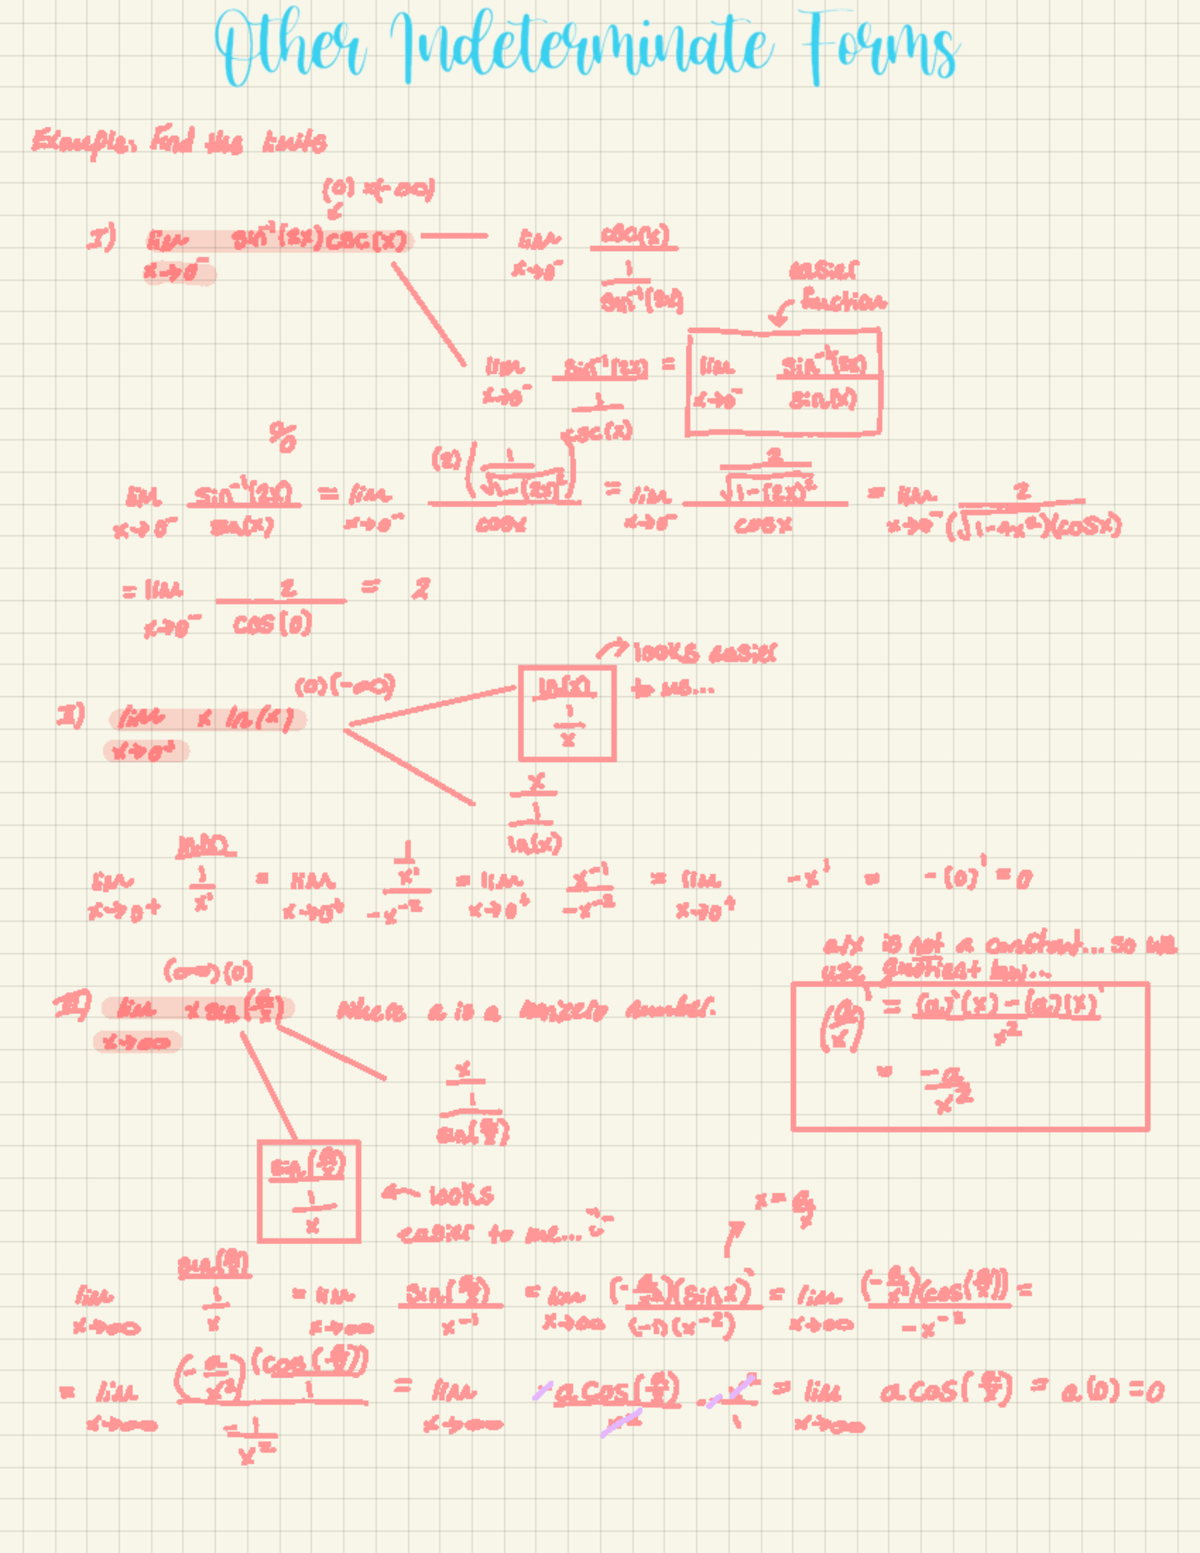 Other Indeterminate Forms
Example: Find the limits
(0) x(-∞)
I) lim x→0⁻ sin⁻¹(2x) csc(x)
lim x→0⁻ csc(x) / (1 / sin⁻¹(2x))
easier
function
lim x→0⁻ sin⁻¹(2x) / (1 / csc(x)) = lim x→0⁻ sin⁻¹(2x) / sin(x)
0/0
lim x→0⁻ sin⁻¹(2x) / sin(x) = lim x→0⁻ (2)(1 / √1-(2x)²) / cosx = lim x→0⁻ (2 / √1-(2x)²) / cosx = lim x→0⁻ 2 / (√1-4x²)(cosx)
= lim x→0⁻ 2 / cos(0) = 2
looks easier
to me...
(0)(-∞)
II) lim x→0⁺ x ln(x)
ln(x) / (1 / x)
x / (1 / ln(x))
lim x→0⁺ ln(x) / (1 / x¹) = lim x→0⁺ (1 / x¹) / -x⁻² = lim x→0⁺ x⁻¹ / -x⁻² = lim x→0⁺ -x¹ = -(0)¹ = 0
a/x is not a constant... so we
use quotient law...
(a/x)' = ((a)'(x) - (a)(x)') / x²
= -a / x²
(∞)(0)
III) lim x→∞ x sin(a/x) where a is a nonzero number.
x / (1 / sin(a/x))
sin(a/x) / (1 / x)
looks
easier to me...
x = a/x
lim x→∞ sin(a/x) / (1 / x) = lim x→∞ sin(a/x) / x⁻¹ = lim x→∞ (-a/x²)(sinx)' / (-1)(x⁻²) = lim x→∞ (-a/x²)(cos(a/x)) / -x⁻² =
= lim x→∞ ((-a/x²)(cos(a/x)) / 1) / (-1 / x²) = lim x→∞ -a cos(a/x) / x² · -x² / 1 = lim x→∞ a cos(a/x) = a(0) = 0